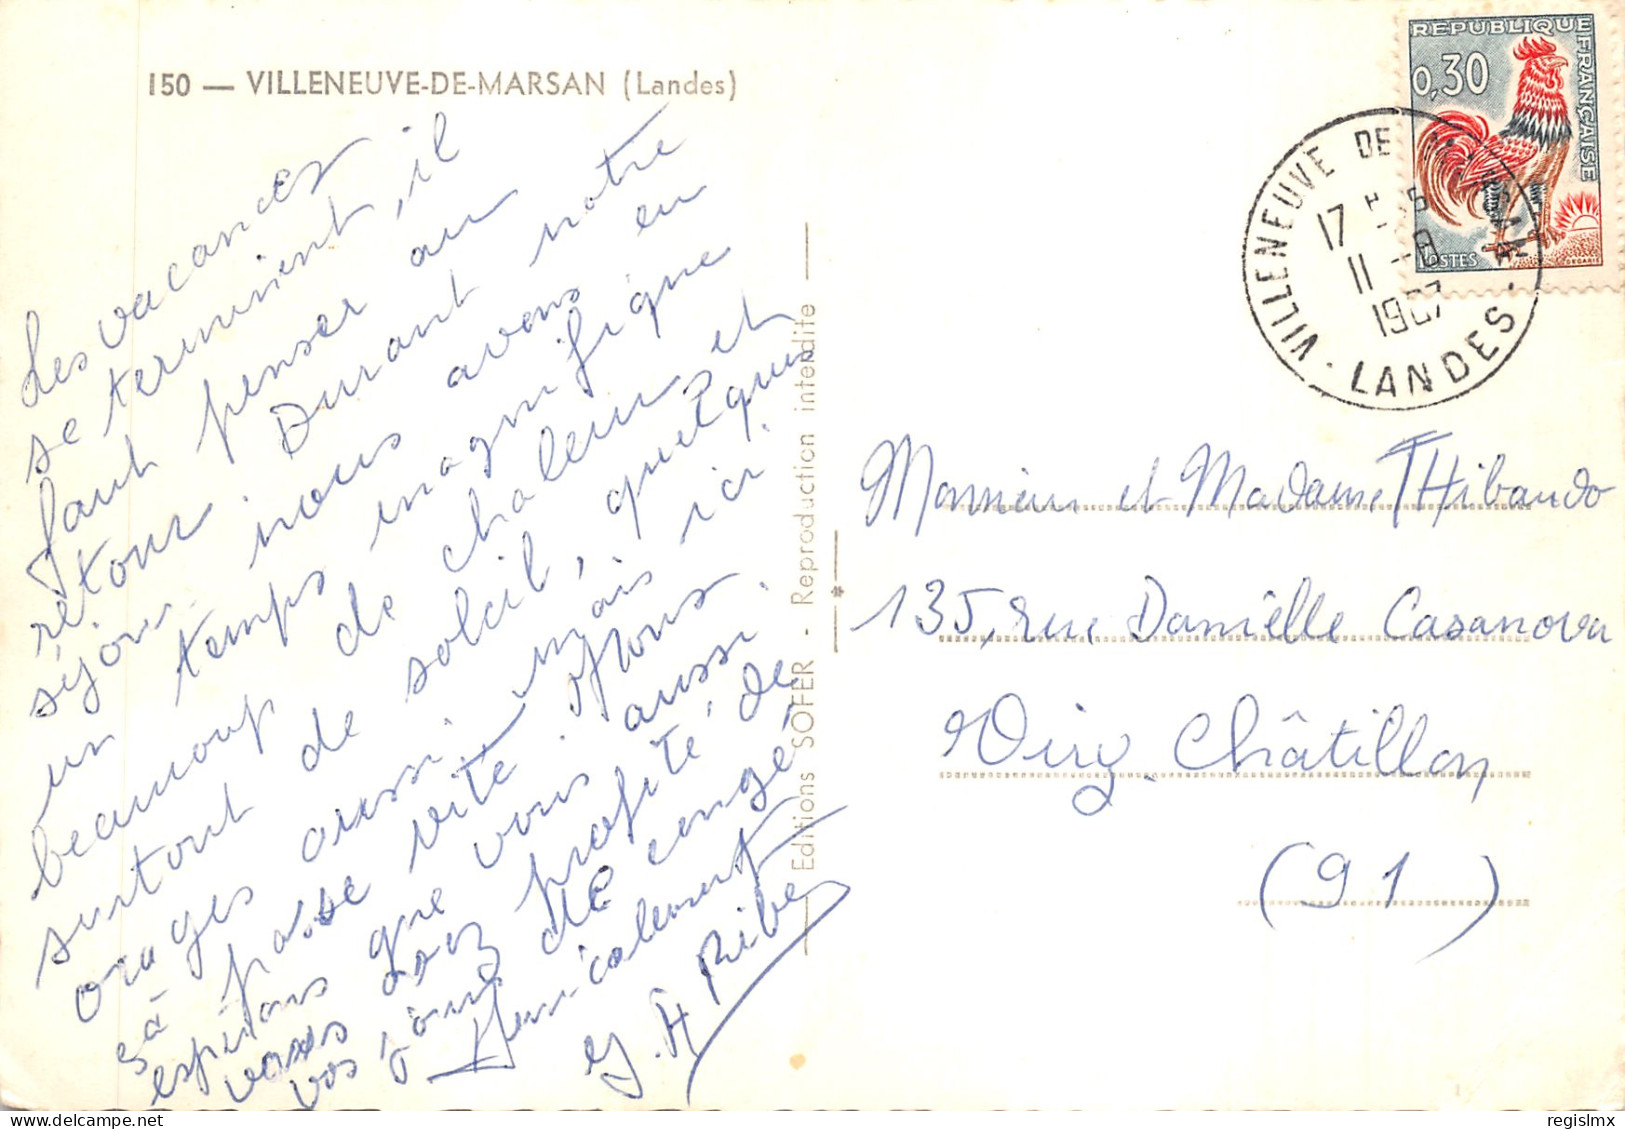 150 — VILLENEUVE-DE-MARSAN (Landes)
Les vacances
se terminent, il
faut penser au
retour. Durant notre
séjour nous avons eu
un temps magnifique
beaucoup de chaleur et
surtout de soleil, quelques
orages aussi mais ici
ça passe vite. Nous
espérons que vous aussi
vous avez profité de
vos jours de congé.
Amicalement
Editions SOFER - Reproduction interdite
REPUBLIQUE FRANÇAISE
0,30
POSTES
DECARIS
VILLENEUVE DE MARSAN
17 H
11 - 8
1967
LANDES
Monsieur et Madame THibaudo
135, rue Danielle Casanova
Viry. Châtillon
(91)
delcampe.net
regislmx